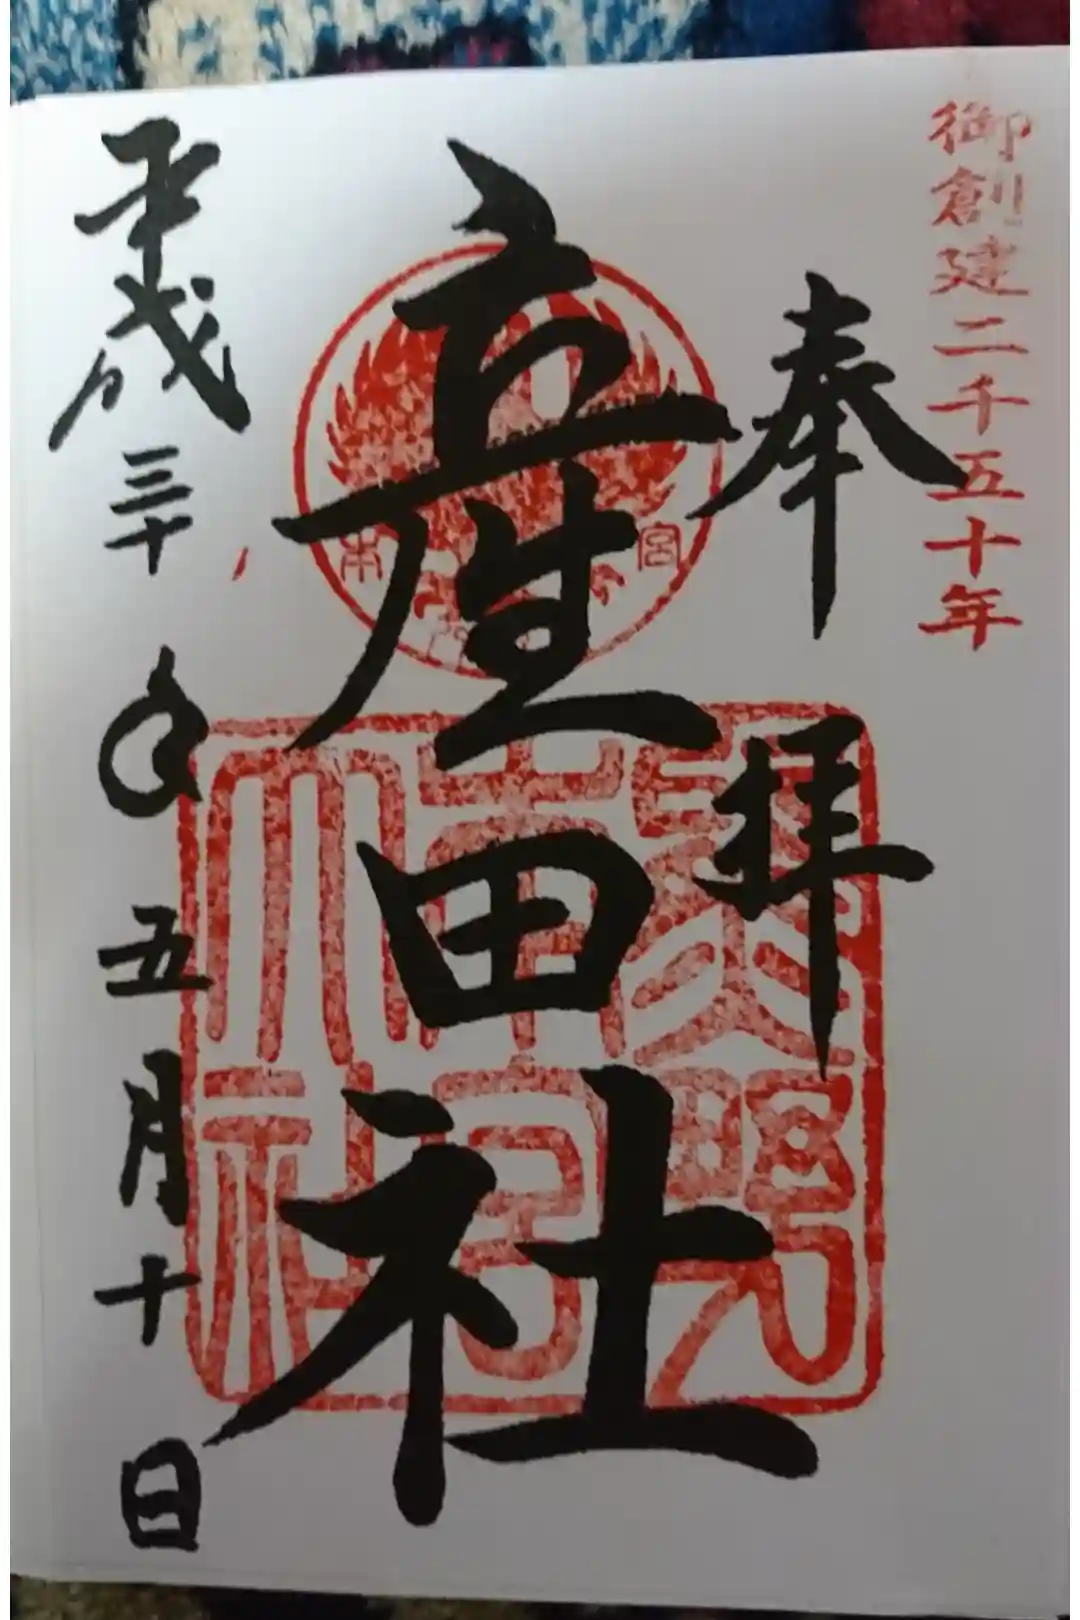 御創建二千五十年
奉拝
産田社
平成三十年五月十日